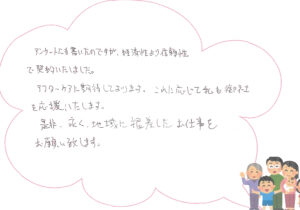 アンケートにも書いたのですが、経済性より信頼性
で契約いたしました。
アフターケアに期待しております。これに応じて私も御社
を応援いたします。
是非、広く、地域に根差したお仕事を
お願い致します。